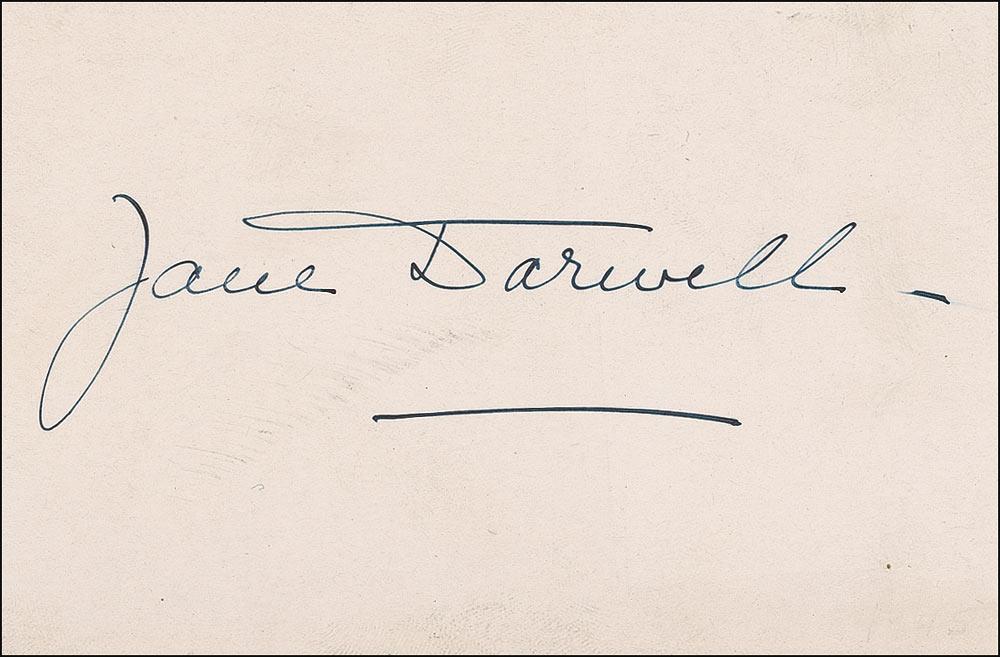 Jane Darwell -